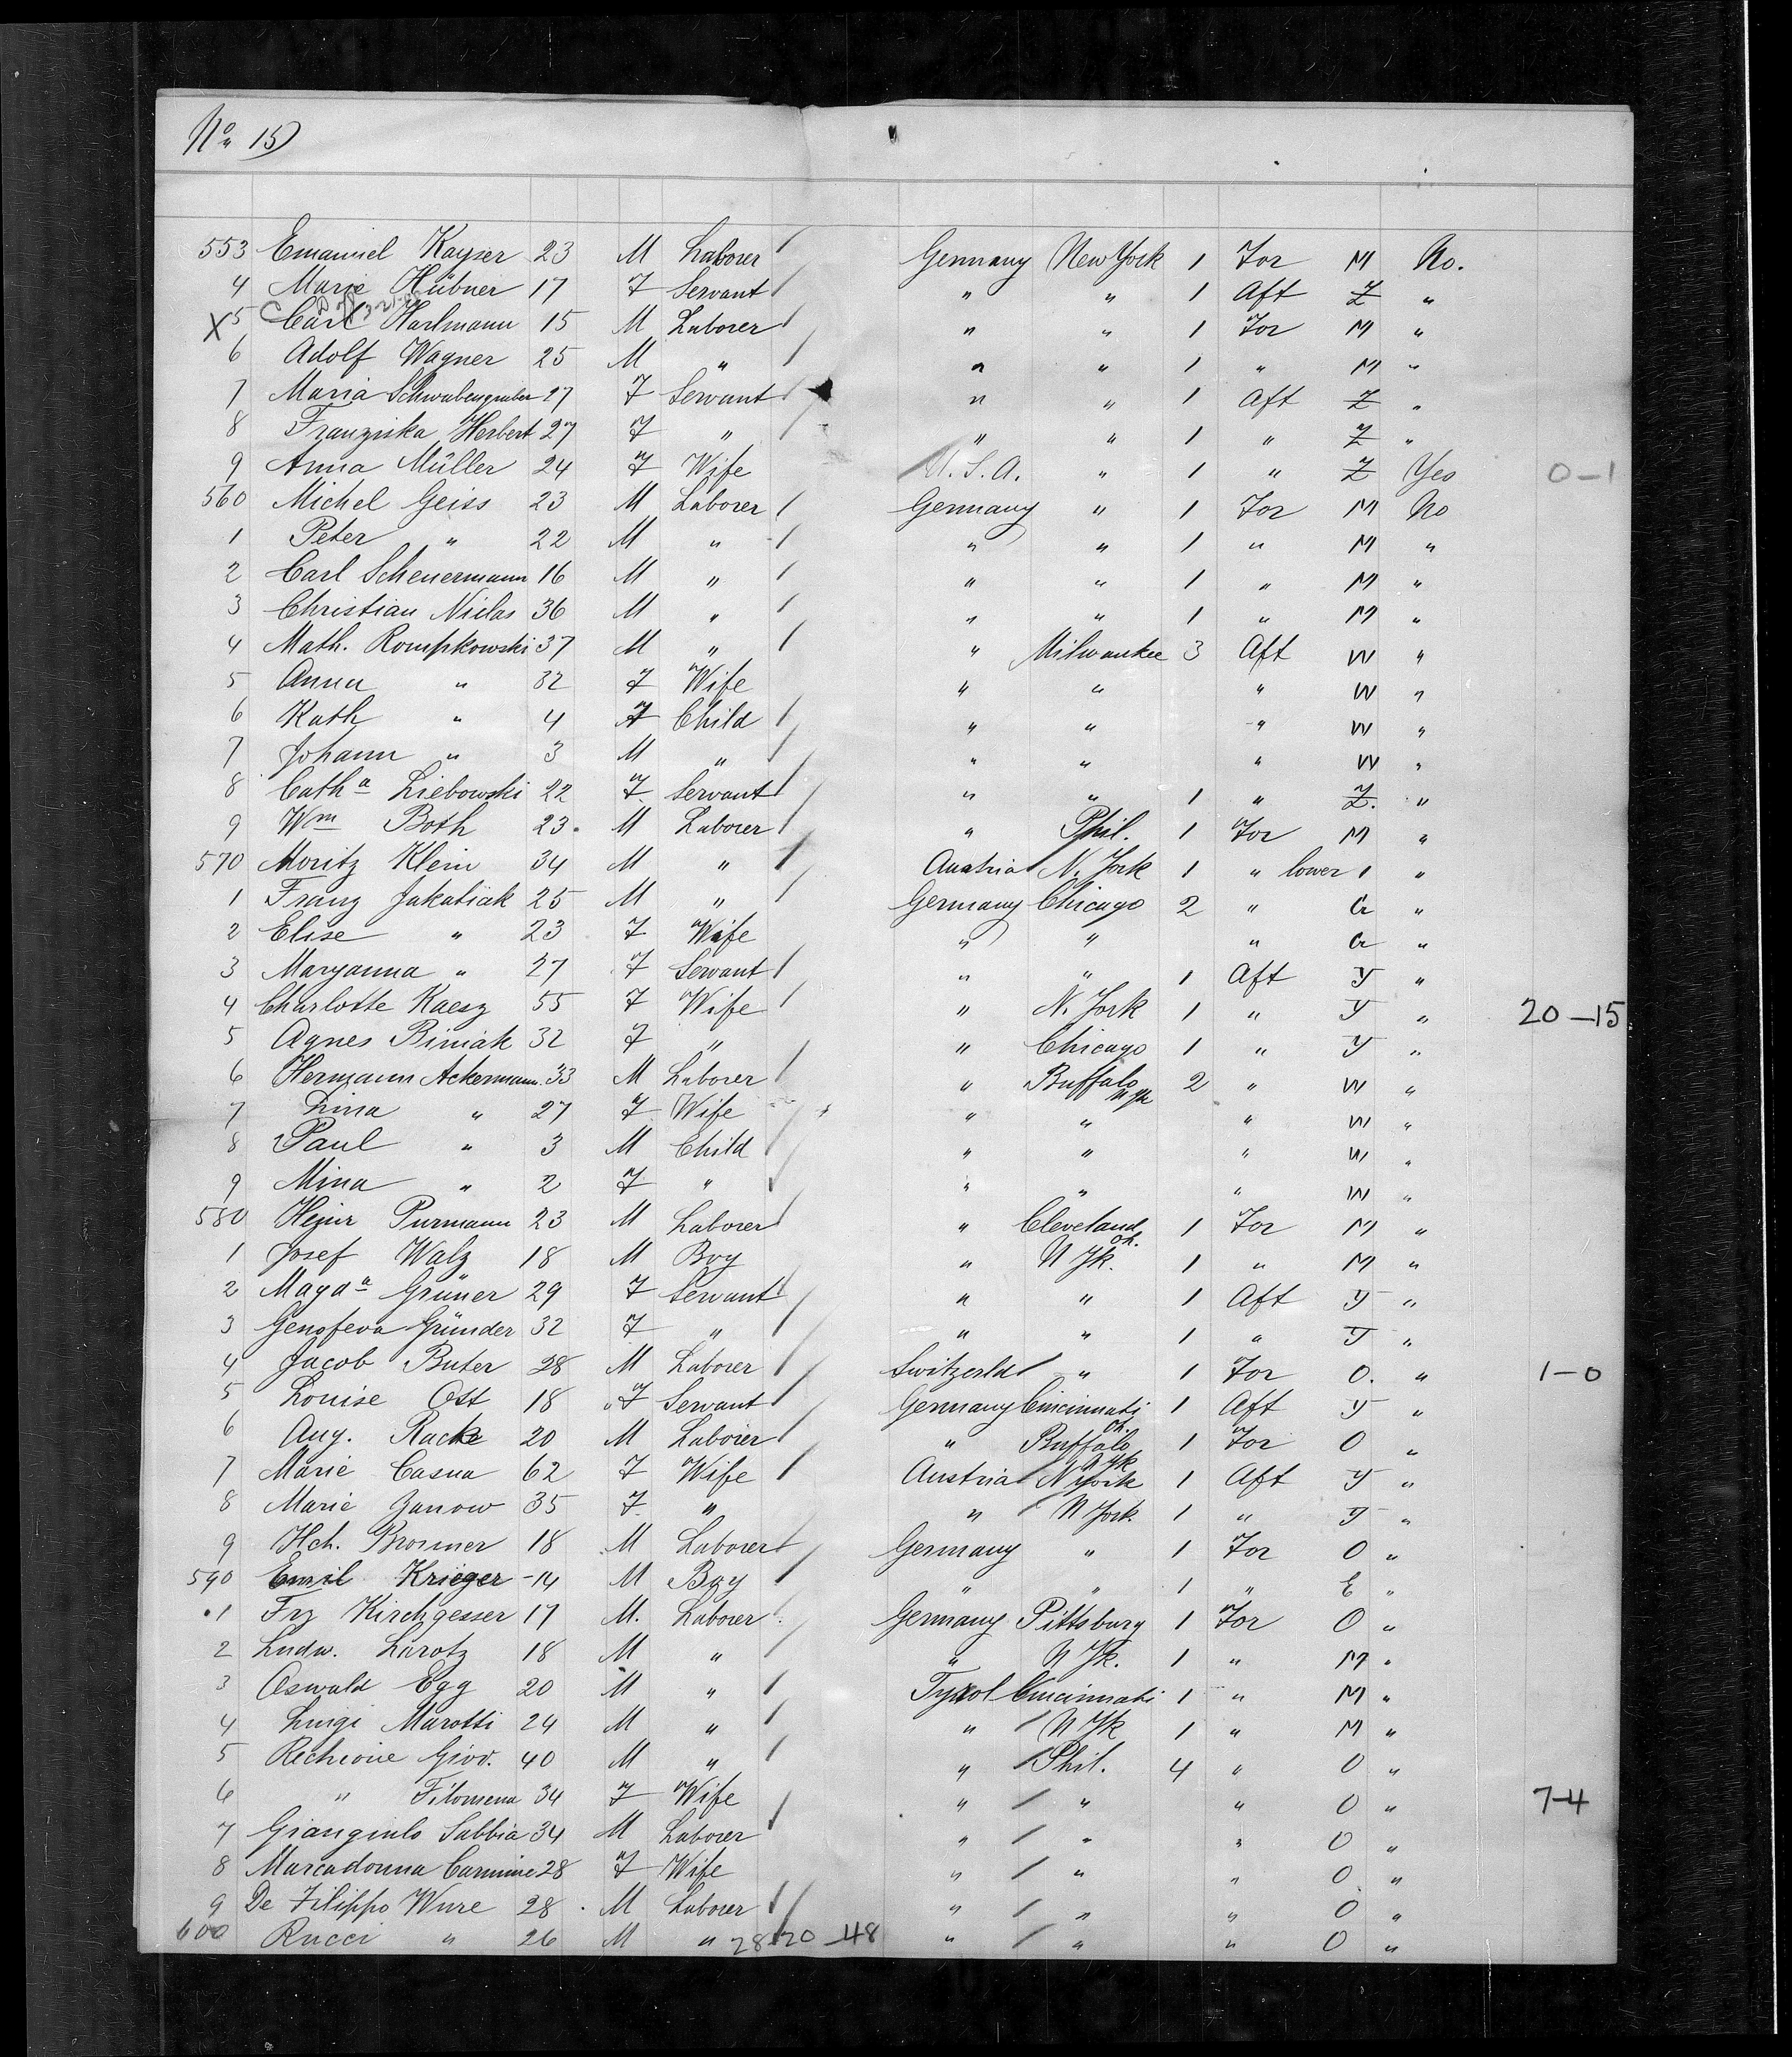 No 15)
553 Emanuel Kayser 23 M Laborer / Germany New York 1 For M No.
4 Marie Hübner 17 F Servant / " " 1 Aft Z "
X 5 Carl Harlmann 15 M Laborer / " " 1 For M "
6 Adolf Wagner 25 M " / " " 1 " M "
7 Maria Schwabengruber 27 F Servant / " " 1 Aft Z "
8 Franziska Herbert 27 F " / " " 1 " Z "
9 Anna Müller 24 F Wife U.S.A. " 1 " Z Yes 0-1
560 Michel Geiss 23 M Laborer / Germany " 1 For M No
1 Peter " 22 M " / " " 1 " M "
2 Carl Scheuermann 16 M " / " " 1 " M "
3 Christian Niclas 36 M " / " " 1 " M "
4 Math. Rompkowski 37 M " / " Milwaukee 3 Aft W "
5 Anna " 32 F Wife " " " W "
6 Kath " 4 F Child / " " " W "
7 Johann " 3 M " / " " " W "
8 Catha Liebowski 22 F Servant / " " 1 " Z. "
9 Wm Both 23. M Laborer / " Phil. 1 For M "
570 Moritz Klein 34 M " / Austria N. York 1 " lower 1 "
1 Franz Jakatiak 25 M " / Germany Chicago 2 " G "
2 Elise " 23 F Wife " " " G "
3 Maryanna " 27 F Servant / " " 1 Aft Y "
4 Charlotte Kaesz 55 F Wife / " N. York 1 " Y " 20-15
5 Agnes Biniak 32 F " " Chicago 1 " Y "
6 Hermann Ackermann. 33 M Laborer / " Buffalo NYk 2 " W "
7 Lina " 27 F Wife / " " " W "
8 Paul " 3 M Child / " " " W "
9 Mina " 2 F " / " " " W "
580 Hejnr Purmann 23 M Laborer / " Cleveland Oh. 1 For M "
1 Josef Walz 18 M Boy " N Yk. 1 " M "
2 Magda Grüner 29 F Servant / " " 1 Aft Y "
3 Genofeva Gründer 32 F " / " " 1 " Y "
4 Jacob Buter 28 M Laborer / Switzerld / " 1 For O. " 1-0
5 Louise Ott 18 F Servant / Germany Cincinnati Oh. 1 Aft Y "
6 Aug. Racke 20 M Laborer / " Buffalo NYk 1 For O "
7 Marie Casna 62 F Wife / Austria / N York 1 Aft Y "
8 Marie Zanow 35 F " " / N York. 1 " Y "
9 Hch. Brosmer 18 M Laborer / Germany " 1 For O "
590 Emil Krieger -14 M Boy / " " 1 " E "
1 Frz Kirchgesser 17 M. Laborer Germany Pittsburg 1 For O "
2 Ludw. Larotz 18 M " / " N Yk. 1 " M "
3 Oswald Egg 20 M " / Tyrol Cincinnati 1 " M "
4 Luigi Marotti 24 M " / " / N Yk 1 " M "
5 Rechione Giov. 40 M " / " / Phil. 4 " O "
6 " Filomena 34 F Wife " / " " O " 7-4
7 Giangiulo Sabbia 34 M Laborer / " / " " O "
8 Marcadonna Carmine 28 F Wife " / " " O "
9 De Filippo Wure 28 . M Laborer / " / " " O "
600 Rucci " 26 M " / " / " " O "
28-20-48